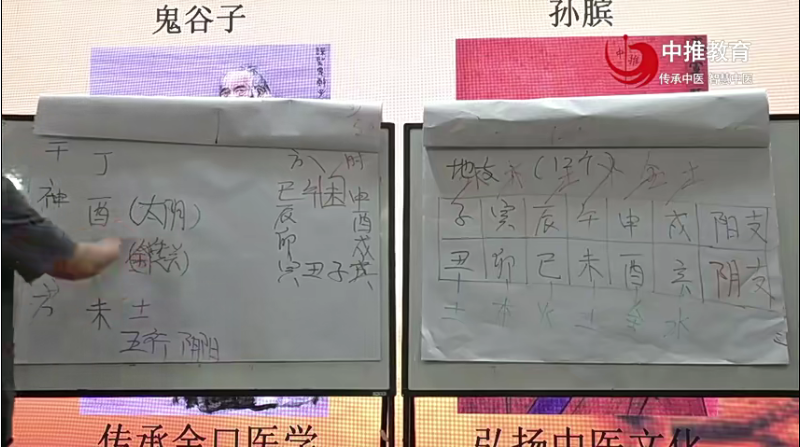 鬼谷子
孙膑
中推教育
传承中医 智慧中医
干 丁
神 酉 (太阴)
方 未 土
五行 阴阳
方 时
巳 午 申
辰 酉
卯 戌
寅 丑 子 亥
地支 (12个)
子 寅 辰 午 申 戌 阳支
丑 卯 巳 未 酉 亥 阴支
土 木 火 土 金 水
传承金口医学
弘扬中医文化